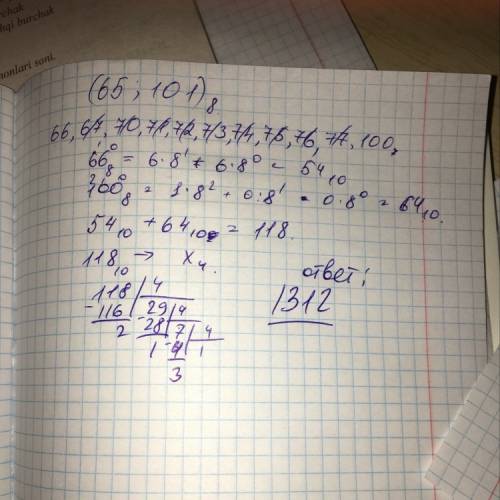 rchak
hqi burchak
nonlari soni.
(65 ; 101)₈
66, 67, 70, 71, 72, 73, 74, 75, 76, 77, 100,
66₈ = 6·8¹ + 6·8⁰ = 54₁₀
100₈ = 1·8² + 0·8¹ - 0·8⁰ = 64₁₀.
54₁₀ + 64₁₀ = 118.
118₁₀ → X₄.
ответ:
1312
118 | 4
-116 29 | 4
2 -28 7 | 4
1 -4 1
3